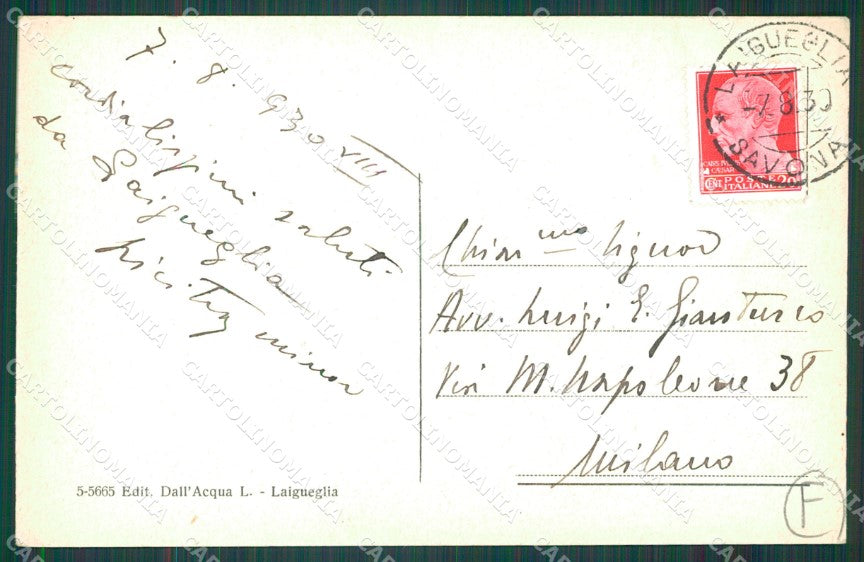 7. 8. 930 VIII
cordialissimi saluti
da Laigueglia
minor
5-5665 Edit. Dall'Acqua L. - Laigueglia
LAIGUEGLIA
-7.8.30
* SAVONA
POSTE
ITALIANE
CENT 20
Chiar.mo Signor
Avv. Luigi E. Gianturco
Via M. Napoleone 38
Milano
F
CARTOLINOMANIA